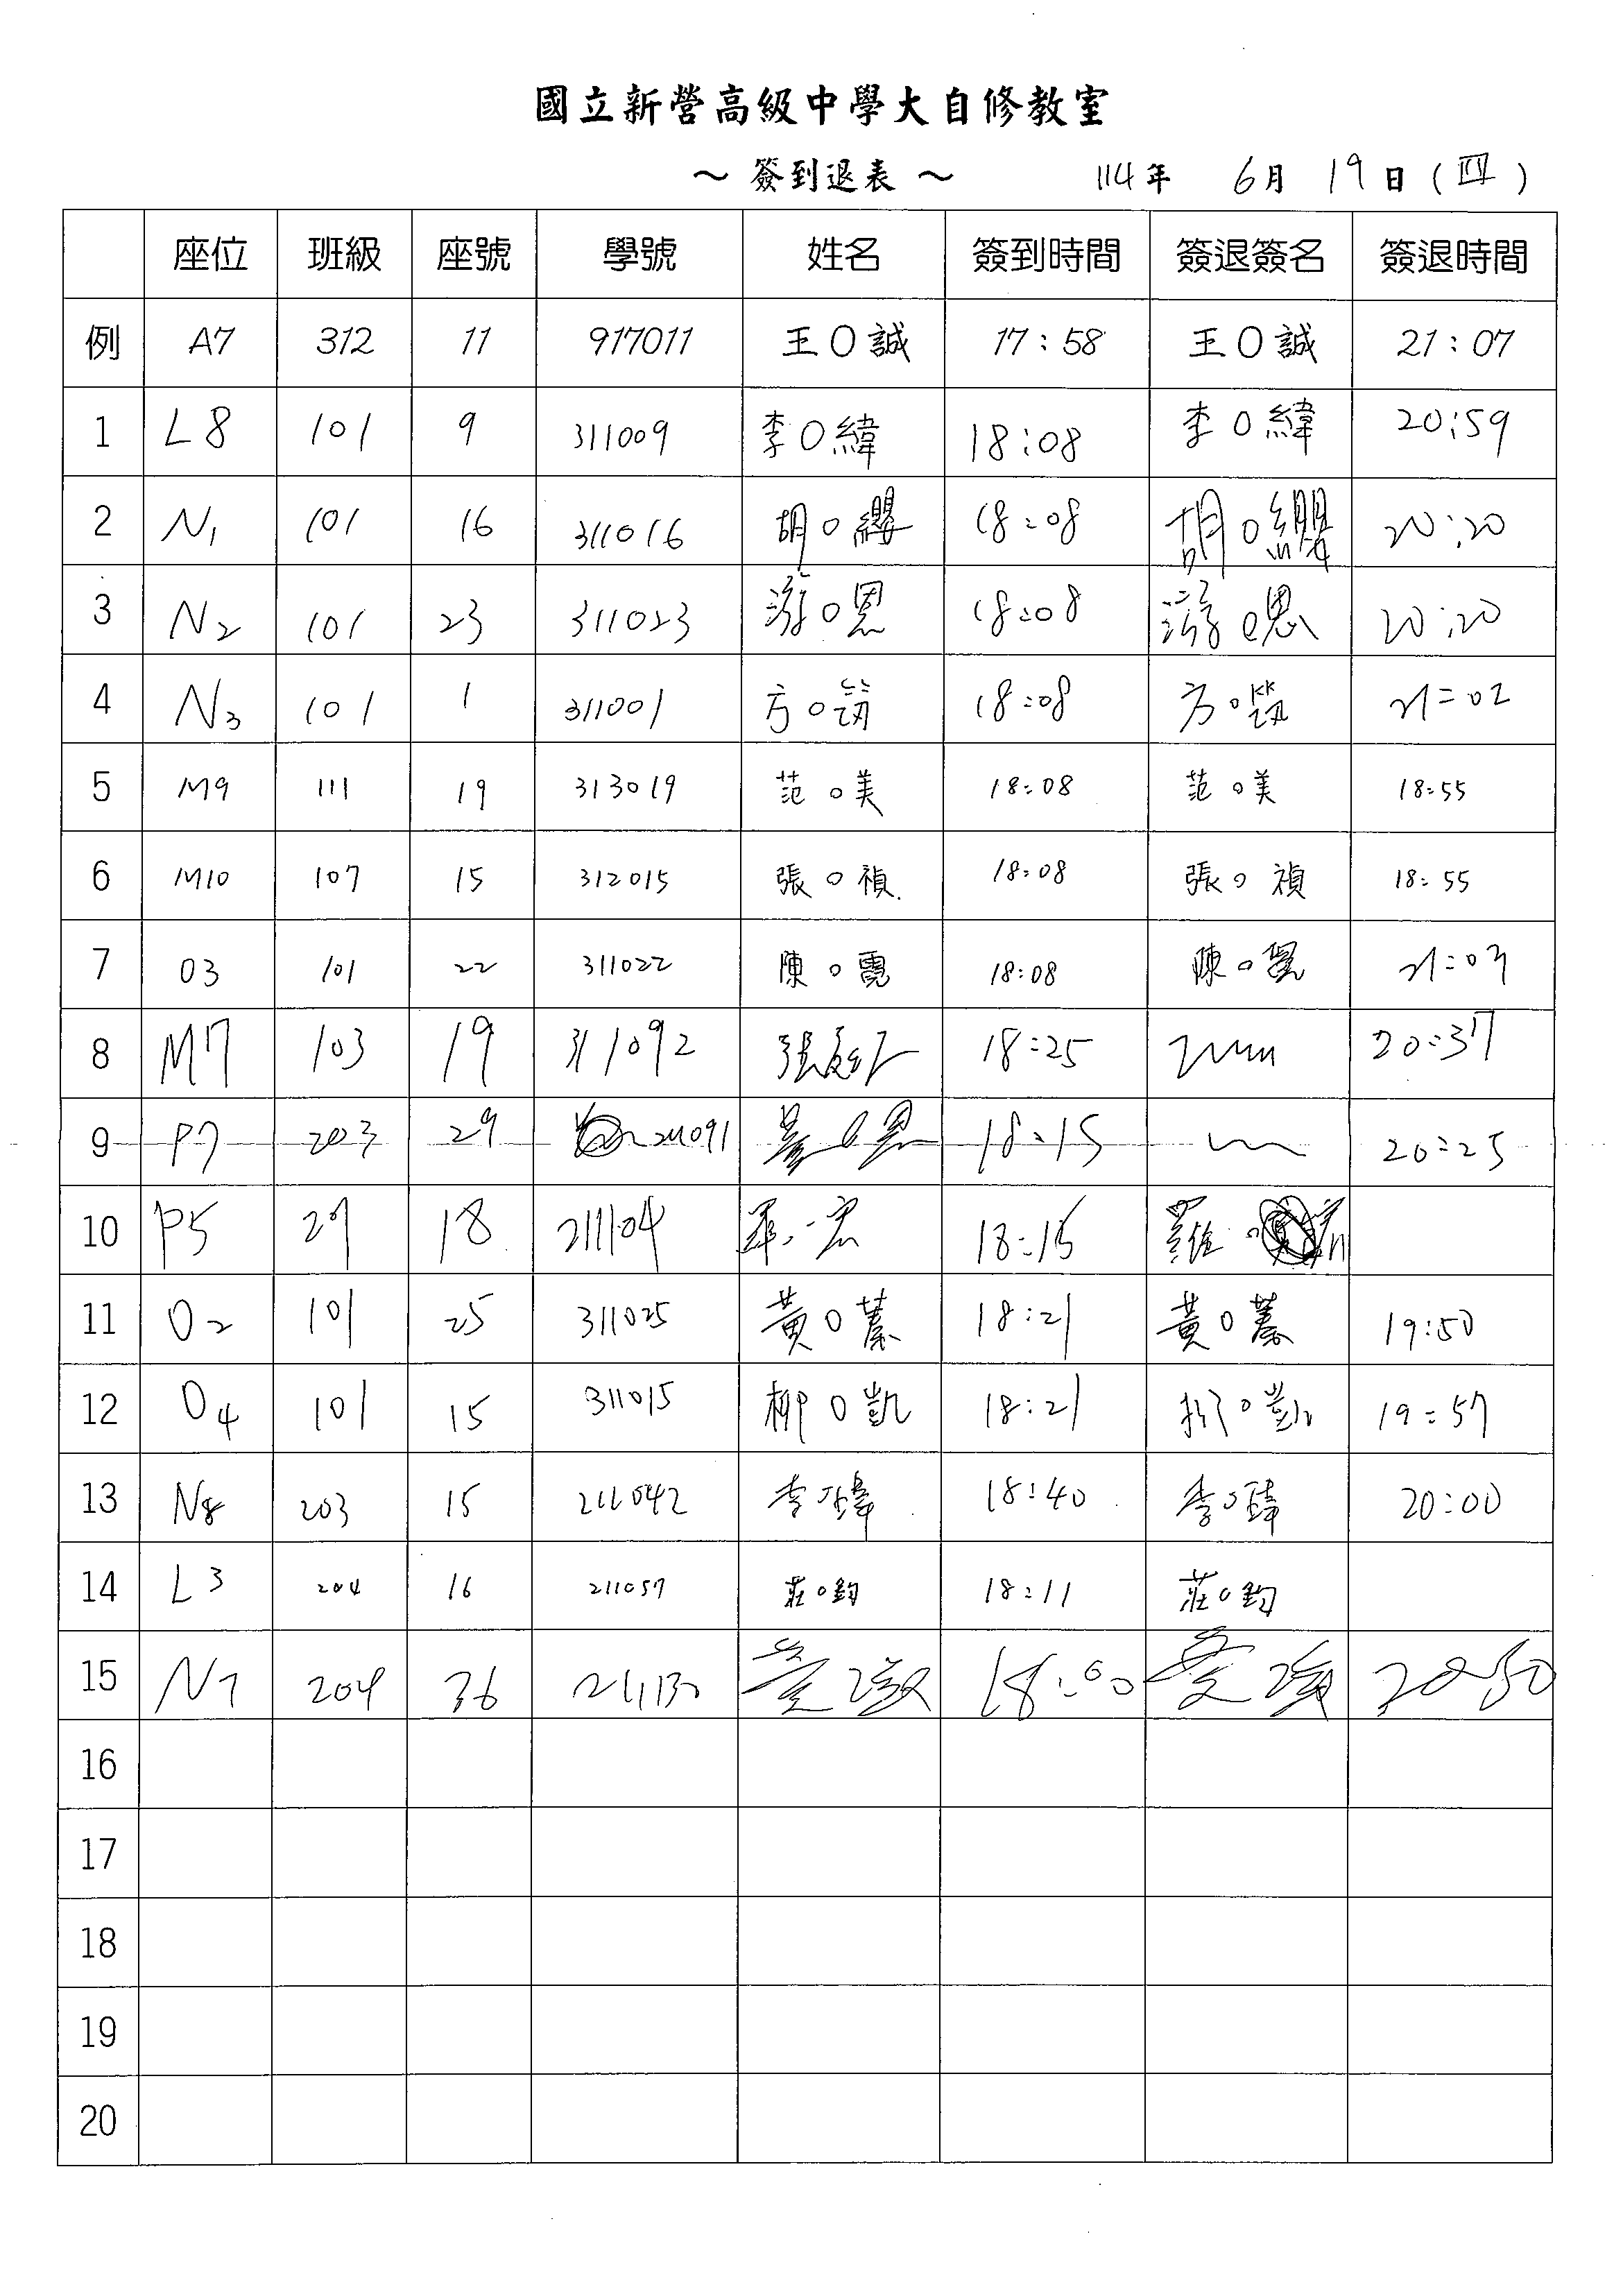 國立新營高級中學大自修教室
～ 簽到退表 ～ 114年 6月 19日(四)
座位 班級 座號 學號 姓名 簽到時間 簽退簽名 簽退時間
例 A7 312 11 917011 王O誠 17:58 王O誠 21:07
1 L8 101 9 311009 李O緯 18:08 李O緯 20:59
2 N1 101 16 311016 胡O纓 18:08 胡O纓 20:20
3 N2 101 23 311023 游O恩 18:08 游O恩 20:20
4 N3 101 1 311001 方O 18:08 方O 21:02
5 M9 111 19 313019 范O美 18:08 范O美 18:55
6 M10 107 15 312015 張O禎 18:08 張O禎 18:55
7 O3 101 22 311022 陳O 18:08 陳O 21:03
8 M7 103 19 311092 張 18:25 20:37
9 P7 203 29 211091 18:15 20:25
10 P5 18 211104 18:15 羅
11 O2 101 25 311025 黃O蓁 18:21 黃O蓁 19:50
12 O4 101 15 311015 柳O凱 18:21 柳O凱 19:57
13 N8 203 15 211042 李O 18:40 李O 20:00
14 L3 204 16 211057 莊O鈞 18:11 莊O鈞
15 N7 204 36 211130 18:00 20:50
16
17
18
19
20